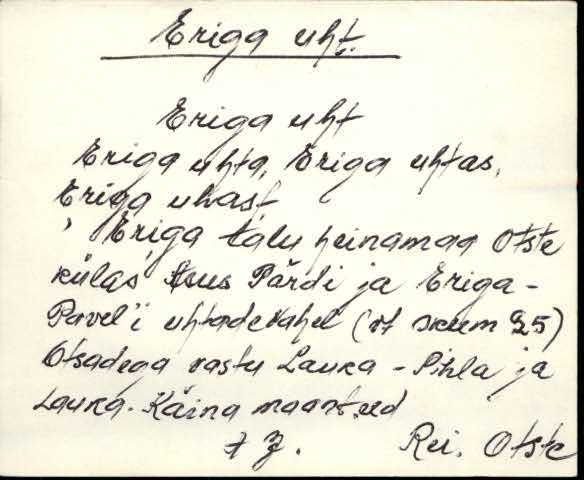 Eriga uht.
Eriga uht
Eriga uhta, Eriga uhtas,
Eriga uhast
Eriga talu heinamaa Otste
külas asus Pärdi ja Eriga-
Pavel'i uhtade vahel (vt skeem 25)
Otsadega vastu Lauka - Pihla ja
Lauka - Käina maanteed
Rei. Otste